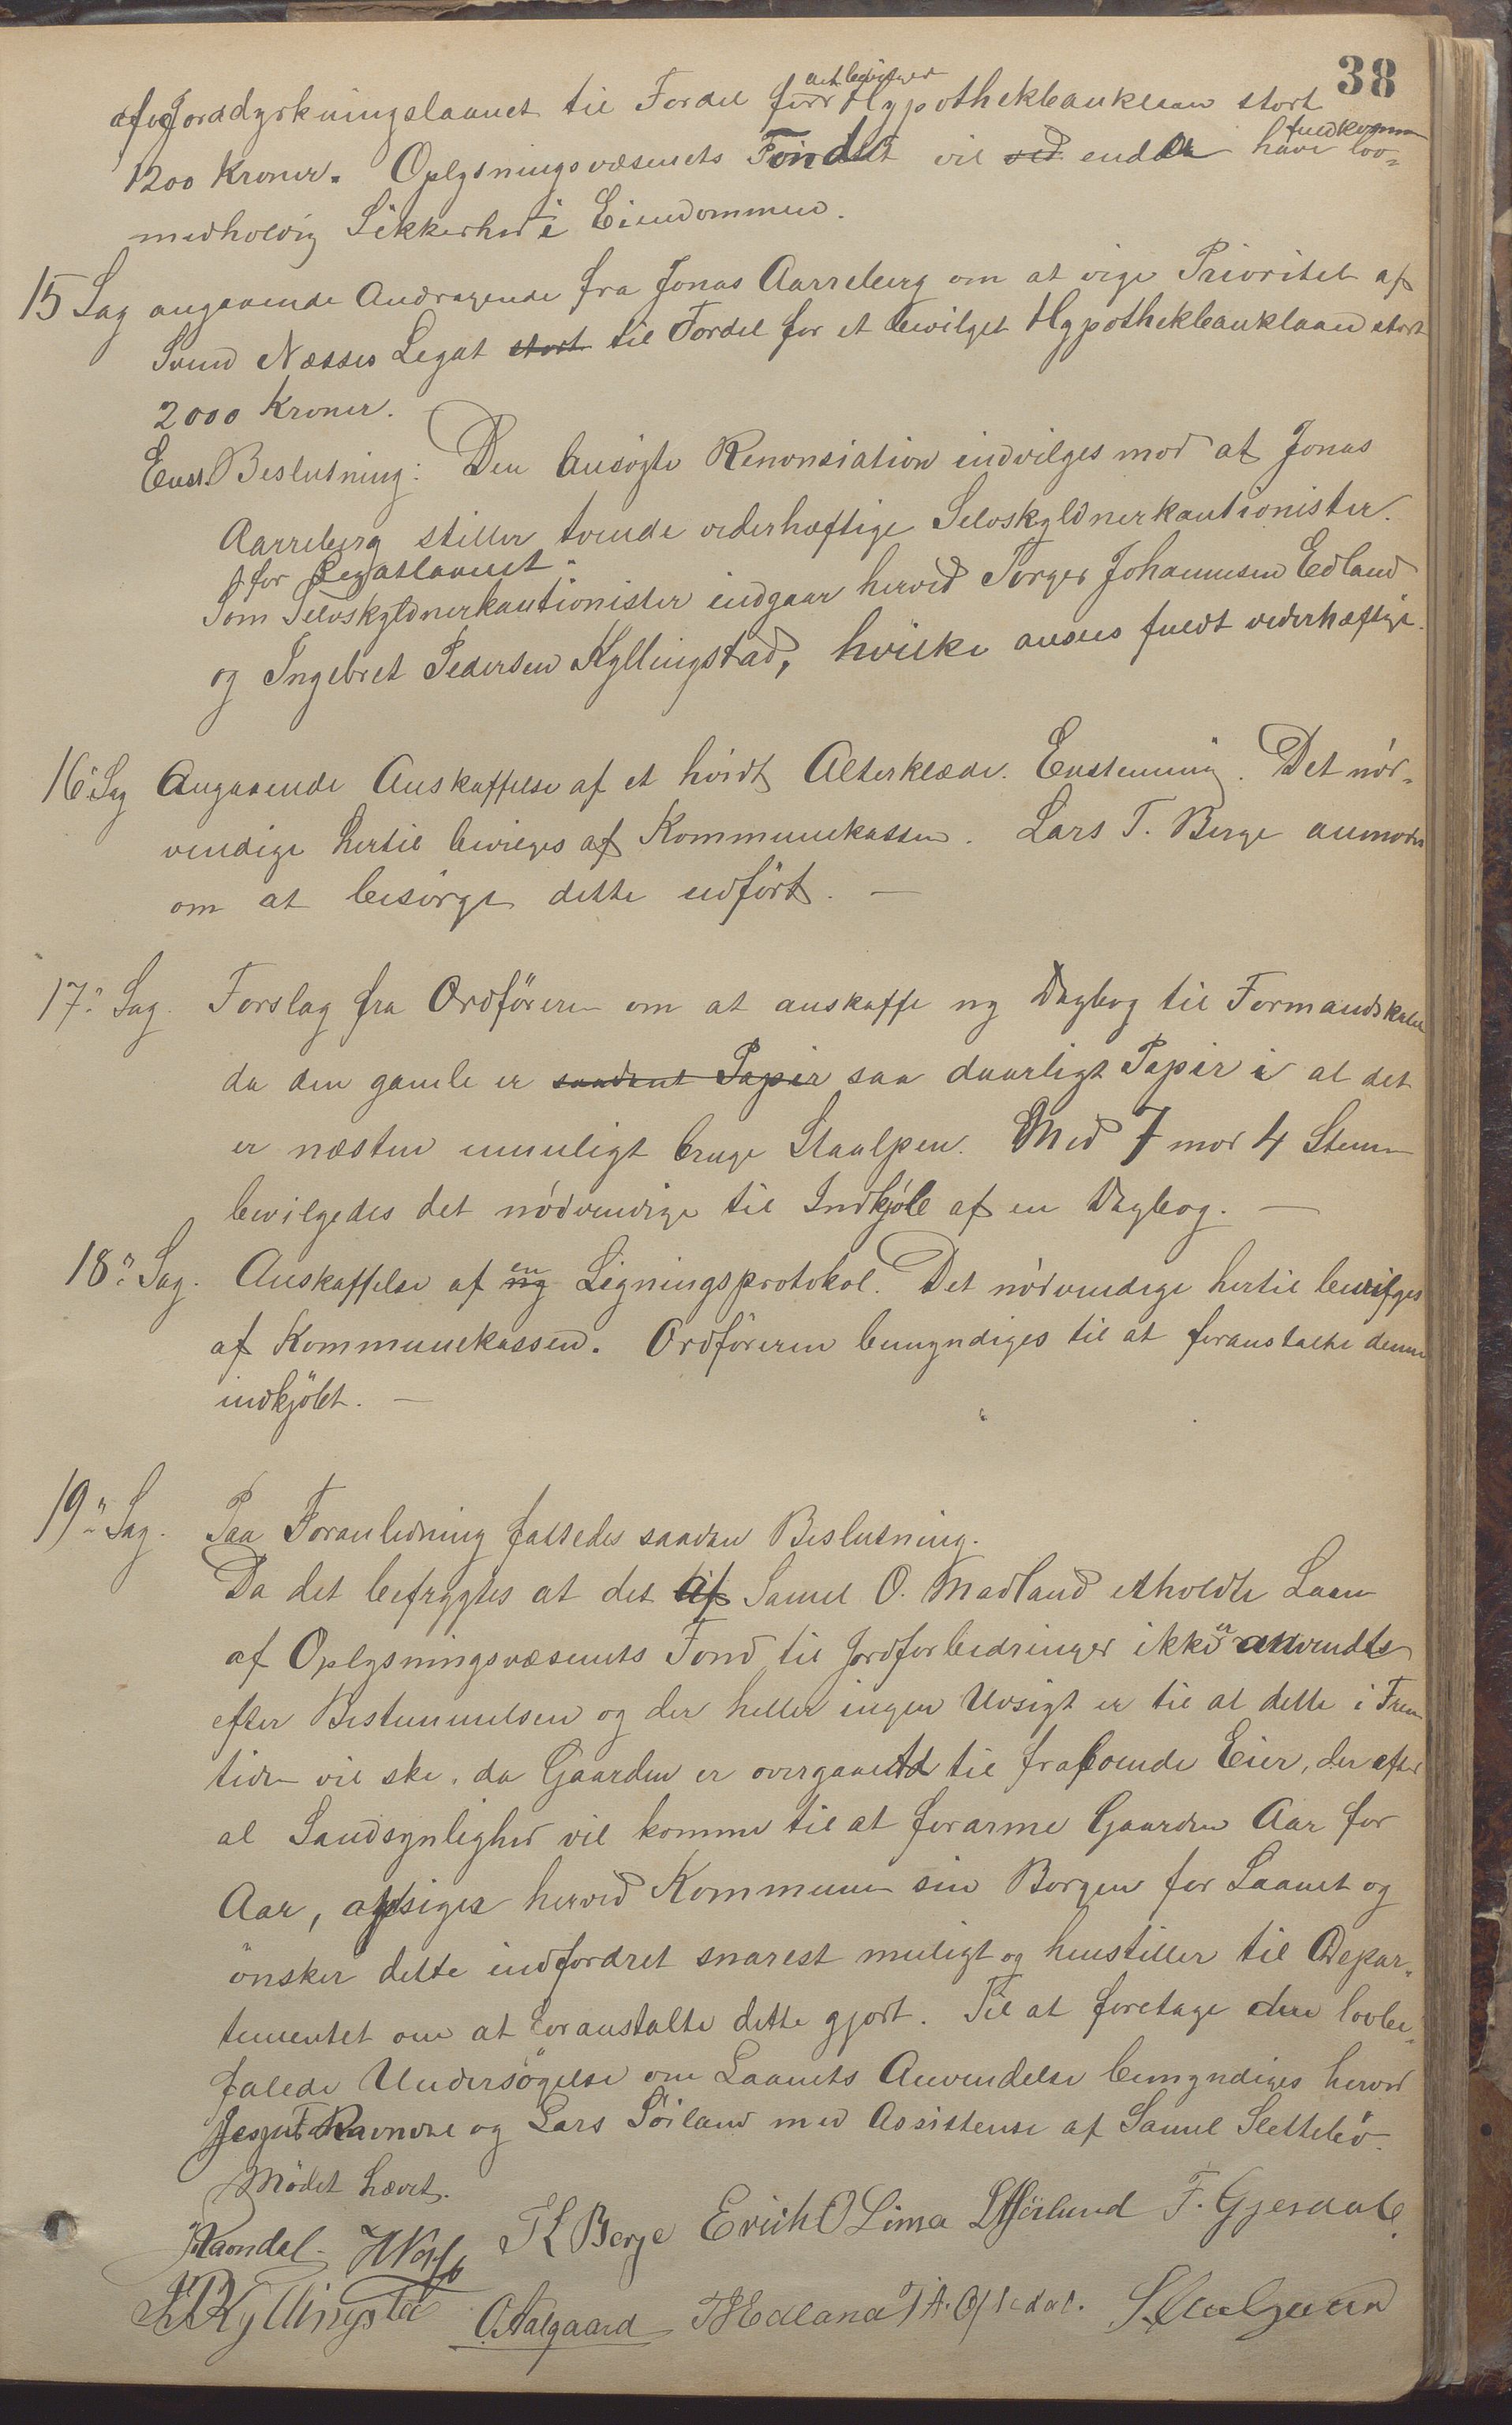 38
af Jorddyrkningslaanet til Fordel for et bevilget Hypothekbanklaan stort
1200 Kroner. Oplysningsvæsenets Fondet vil ved endda have fuldkommen lov-
medholdig Sikkerhed i Eiendommen.
15 Sag angaaende Andragende fra Jonas Aarreberg om at vige Prioritet af
Svend Næsses Legat stort til Fordel for et bevilget Hypothekbanklaan stort
2000 Kroner.
Enst. Beslutning: Den ansøgte Renonsiation indvilges mod at Jonas
Aarreberg stiller tvende vederhæftige Selvskyldnerkautionister
for Legatlaanet.
Som Selvskyldnerkautionister indgaar herved Torger Johannesen Edland
og Ingebret Pedersen Kyllingstad, hvilke ansees fuldt vederhæftige.
16 Sag Angaaende Anskaffelse af et hvidt Alterklæde. Enstemmig. Det nød-
vendige hertil bevilges af Kommunekassen. Lars T. Berge anmodes
om at besørge dette udført. —
17 Sag. Forslag fra Ordføreren om at anskaffe ny Dagbog til Formandskabet
da den gamle er saadant Papir saa daarligt Papir i at det
er næsten umuligt bruge Staalpen. Med 7 mod 4 Stemmer
bevilgedes det nødvendige til Indkjøb af en Dagbog. —
18 Sag. Anskaffelse af ny en Ligningsprotokol. Det nødvendige hertil bevilges
af Kommunekassen. Ordføreren bemyndiges til at foranstalte denne
indkjøbt. —
19 Sag. Paa Foranledning fattedes saadan Beslutning.
Da det befrygtes at det af Samel O. Madland erholdte Laan
af Oplysningsvæsenets Fond til Jordforbedringer ikke er anvendte
efter Bestemmelsen og der heller ingen Udsigt er til at dette i Frem-
tiden vil ske, da Gaarden er overgaaet til fraboende Eier, der efter
al Sandsynlighed vil komme til at forarme Gaarden Aar for
Aar, opsiges herved Kommunen sin Borgen for Laanet og
ønsker dette indfordret snarest muligt og henstiller til Depar-
tementet om at foranstalte dette gjort. Til at foretage den lovbe-
falede Undersøgelse om Laanets Anvendelse bemyndiges herved
Jesper T. Ravndal og Lars Söiland med Assistense af Samel Slettebø.
Mødet hævet.
Ravndal TL Berge Erich O Lima F. Gjesdal
Kyllingsta O. Aalgaard T J Edland